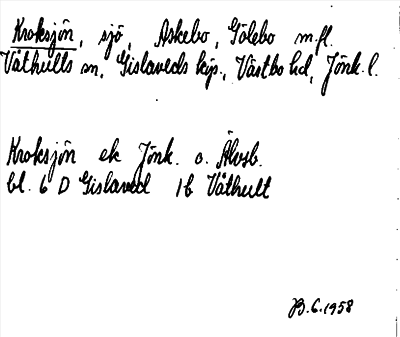 Kroksjön, sjö, Askebo, Gölebo m.fl.
Våthults sn, Gislaveds kps., Västbo hd, Jönk. l.
Kroksjön ek Jönk. o. Älvsb.
bl. 6 D Gislaved 1b Våthult
B.G. 1958